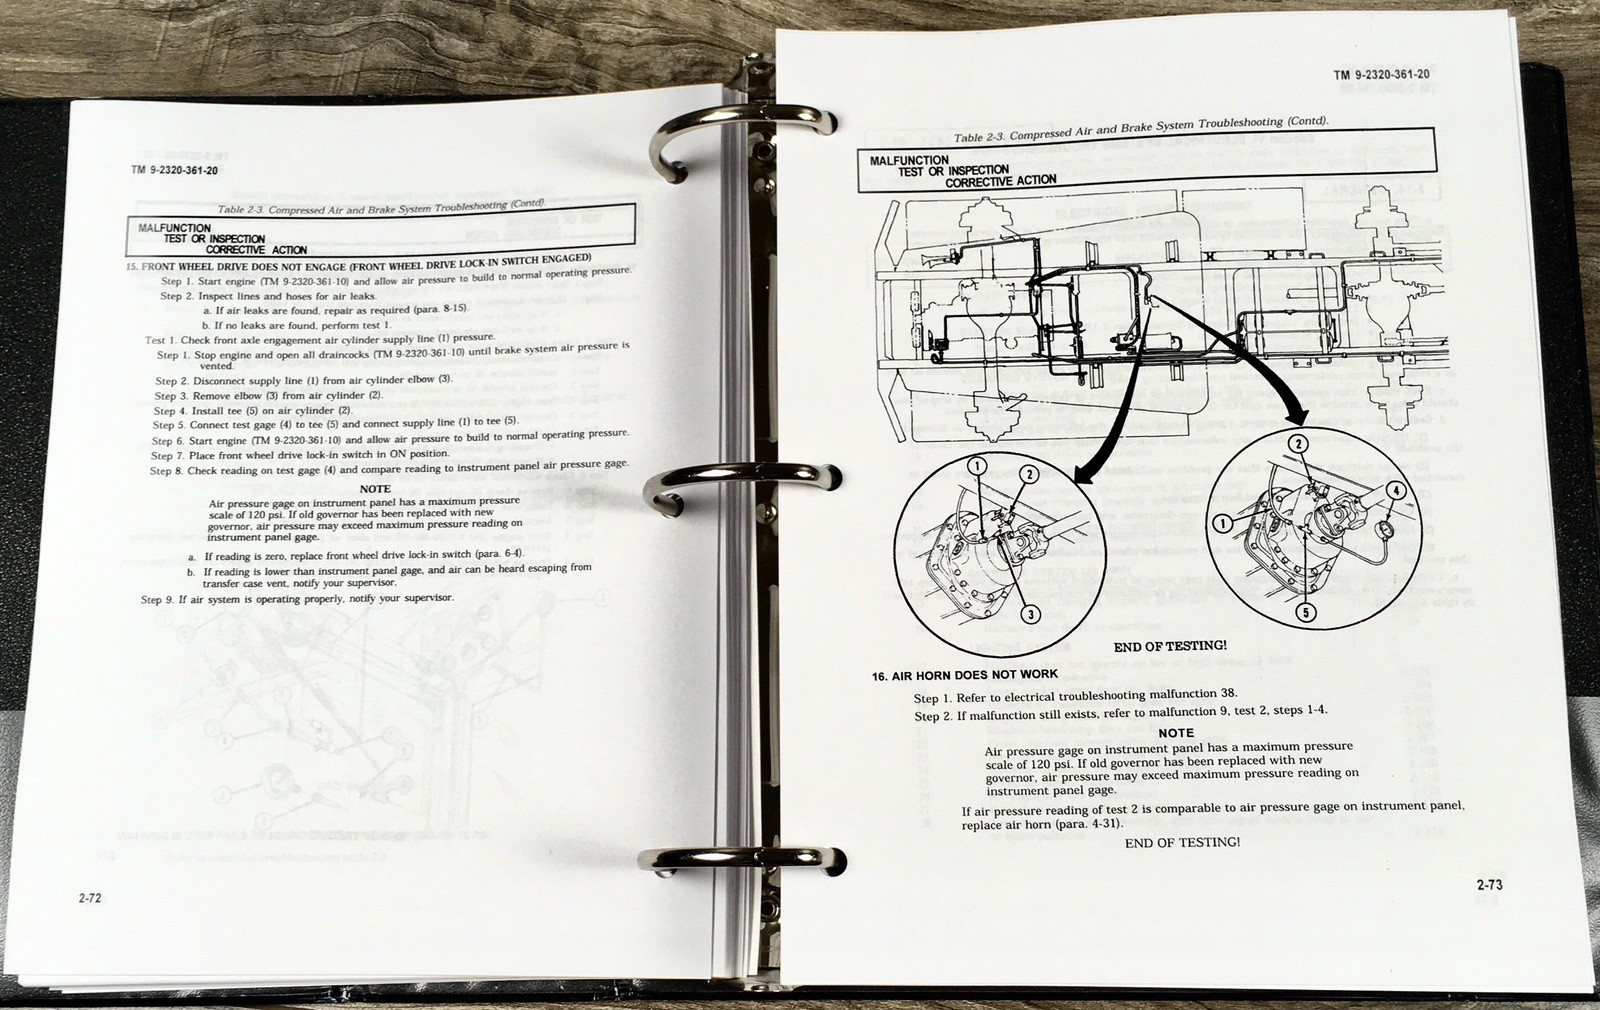 TM 9-2320-361-20
Table 2-3. Compressed Air and Brake System Troubleshooting (Contd).
MALFUNCTION
TEST OR INSPECTION
CORRECTIVE ACTION
15. FRONT WHEEL DRIVE DOES NOT ENGAGE (FRONT WHEEL DRIVE LOCK-IN SWITCH ENGAGED)
Step 1. Start engine (TM 9-2320-361-10) and allow air pressure to build to normal operating pressure.
Step 2. Inspect lines and hoses for air leaks.
a. If air leaks are found, repair as required (para. 8-15).
b. If no leaks are found, perform test 1.
Test 1. Check front axle engagement air cylinder supply line (1) pressure.
Step 1. Stop engine and open all draincocks (TM 9-2320-361-10) until brake system air pressure is
vented.
Step 2. Disconnect supply line (1) from air cylinder elbow (3).
Step 3. Remove elbow (3) from air cylinder (2).
Step 4. Install tee (5) on air cylinder (2).
Step 5. Connect test gage (4) to tee (5) and connect supply line (1) to tee (5).
Step 6. Start engine (TM 9-2320-361-10) and allow air pressure to build to normal operating pressure.
Step 7. Place front wheel drive lock-in switch in ON position.
Step 8. Check reading on test gage (4) and compare reading to instrument panel air pressure gage.
NOTE
Air pressure gage on instrument panel has a maximum pressure
scale of 120 psi. If old governor has been replaced with new
governor, air pressure may exceed maximum pressure reading on
instrument panel gage.
a. If reading is zero, replace front wheel drive lock-in switch (para. 6-4).
b. If reading is lower than instrument panel gage, and air can be heard escaping from
transfer case vent, notify your supervisor.
Step 9. If air system is operating properly, notify your supervisor.
2-72
TM 9-2320-361-20
Table 2-3. Compressed Air and Brake System Troubleshooting (Contd).
MALFUNCTION
TEST OR INSPECTION
CORRECTIVE ACTION
1
2
3
2
4
1
5
END OF TESTING!
16. AIR HORN DOES NOT WORK
Step 1. Refer to electrical troubleshooting malfunction 38.
Step 2. If malfunction still exists, refer to malfunction 9, test 2, steps 1-4.
NOTE
Air pressure gage on instrument panel has a maximum pressure
scale of 120 psi. If old governor has been replaced with new
governor, air pressure may exceed maximum pressure reading on
instrument panel gage.
If air pressure reading of test 2 is comparable to air pressure gage on instrument panel,
replace air horn (para. 4-31).
END OF TESTING!
2-73